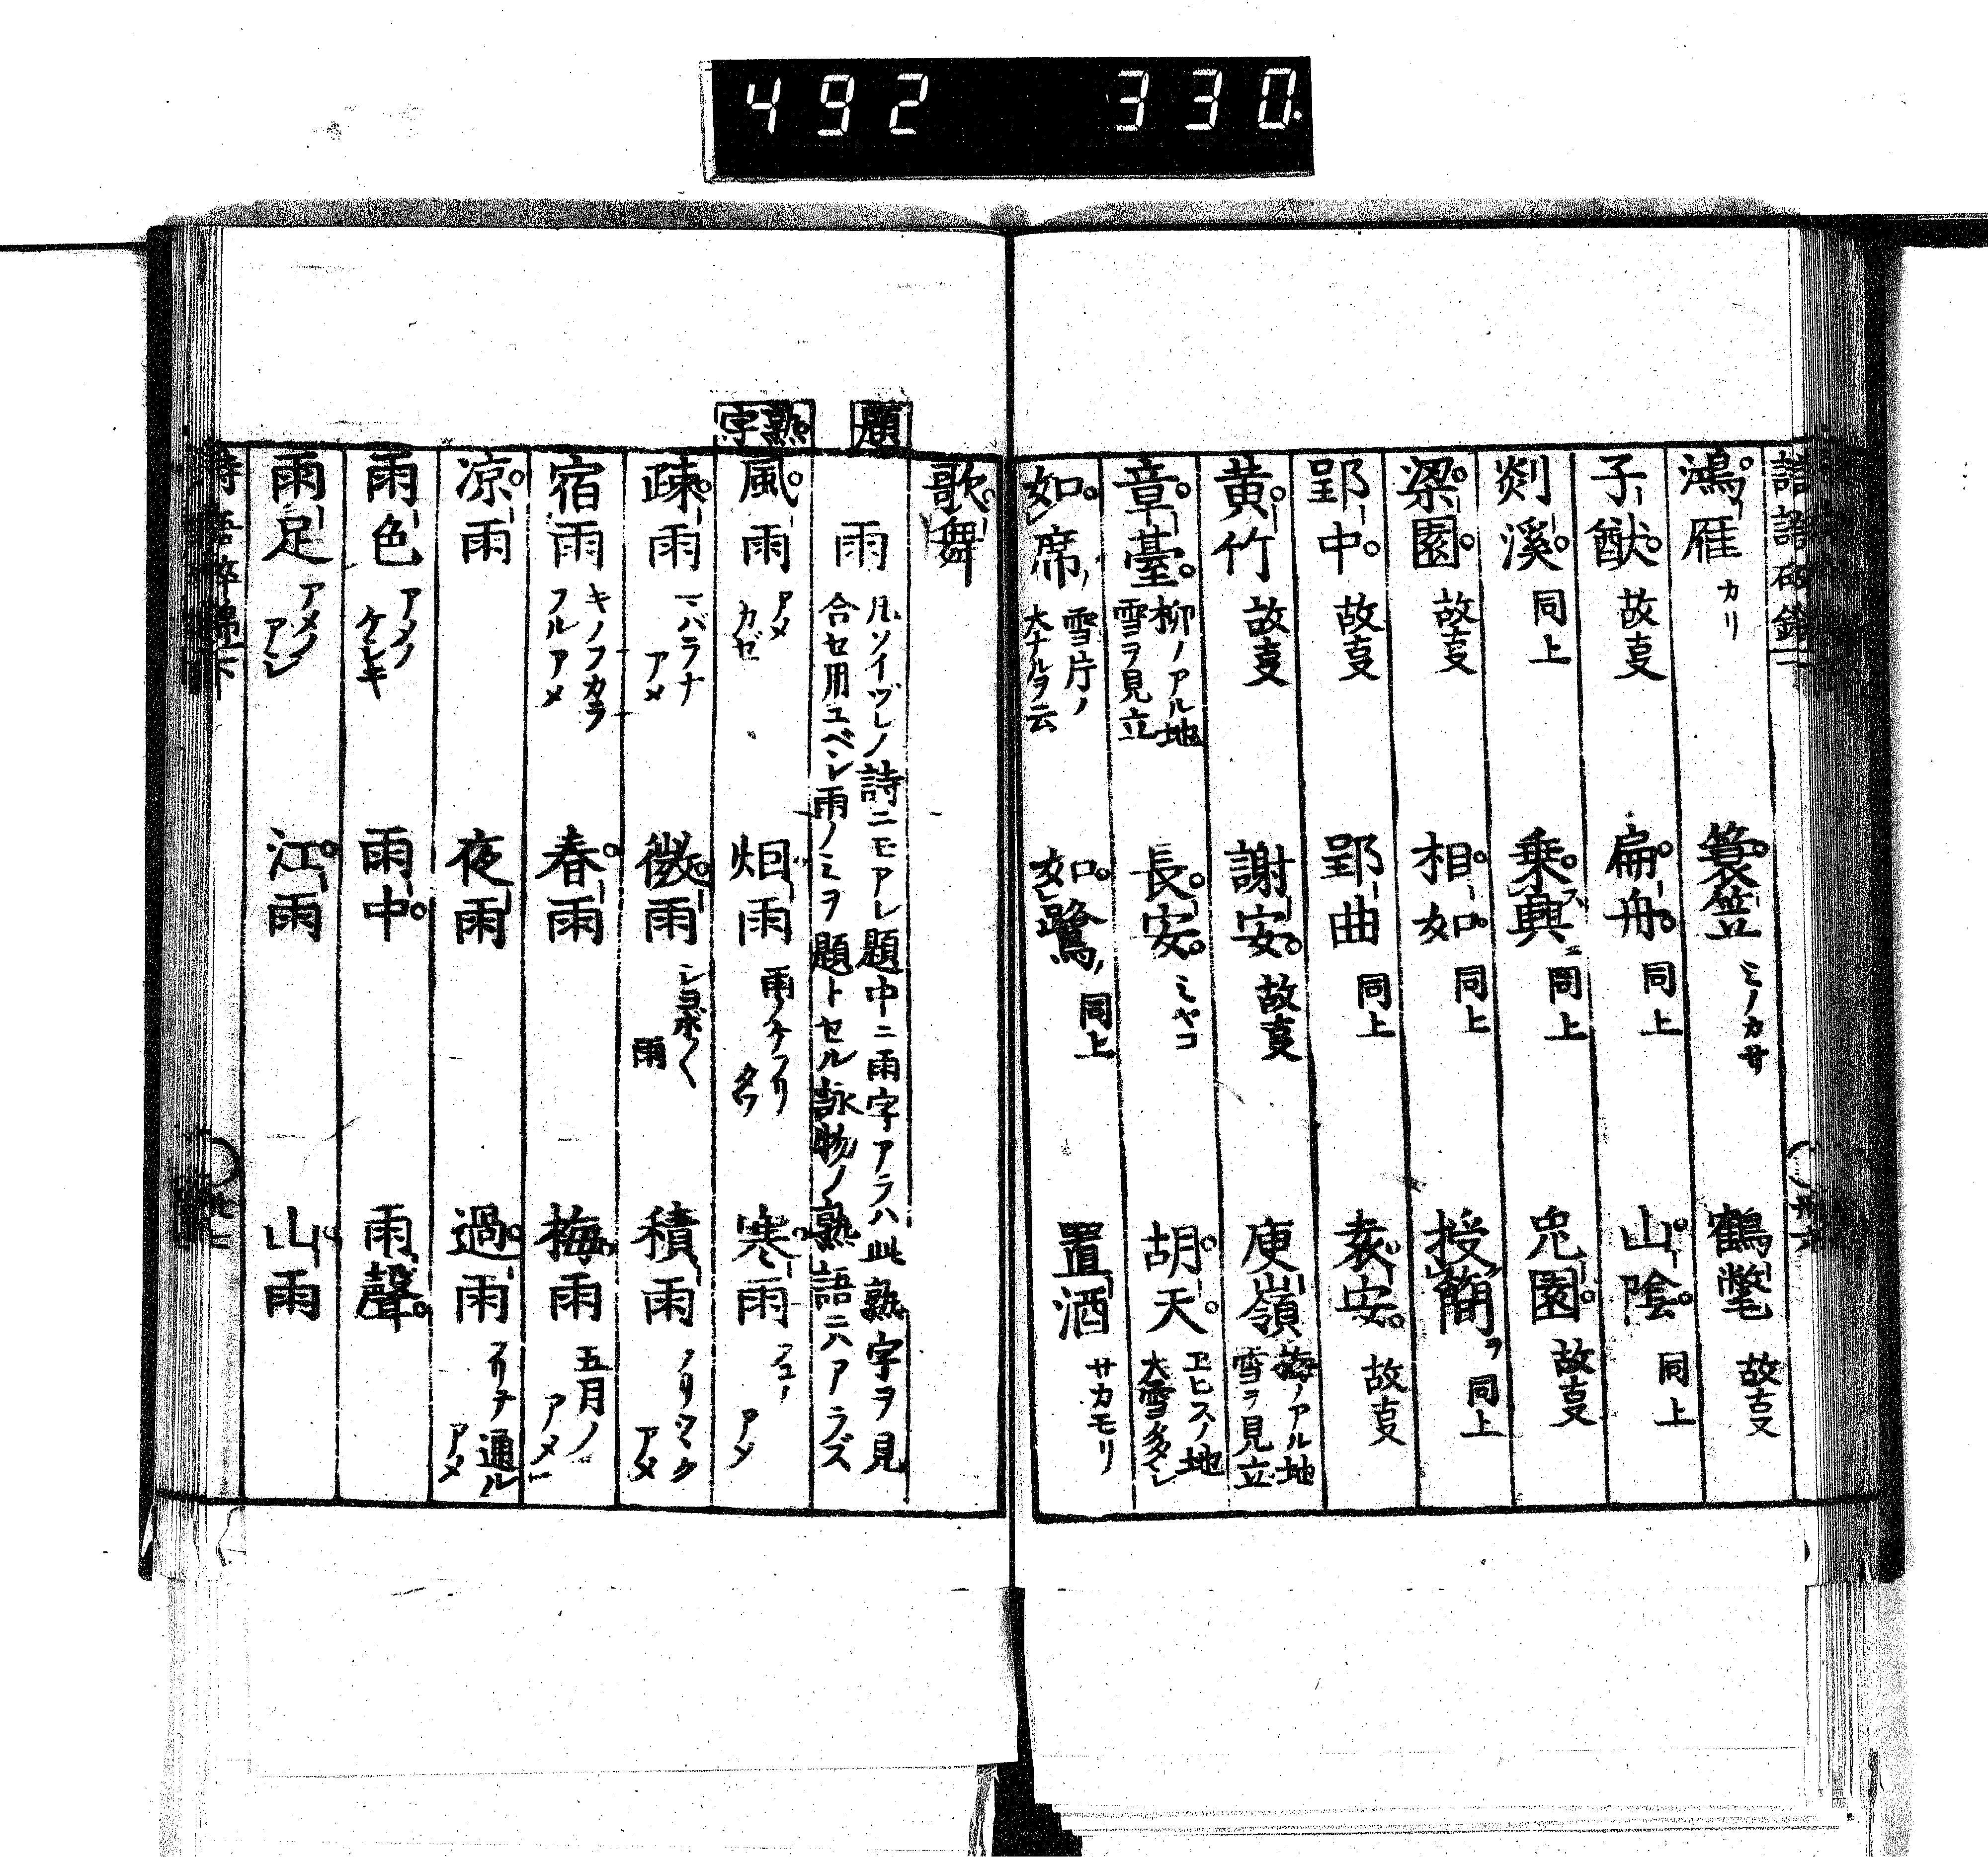 492 330
鴻雁 カリ 簑笠 ミノカサ 鶴氅 故叓
子猷 故叓 扁舟 同上 山陰 同上
剡溪 同上 乗興 同上 兎園 故叓
梁園 故叓 相如 同上 授簡ヲ 同上
郢中 故叓 郢曲 同上 袁安 故叓
黄竹 故叓 謝安 故叓 庾嶺 梅ノアル地雪ヲ見立
章臺 柳ノアル地雪ヲ見立 長安 ミヤコ 胡天 ヱヒスノ地大雪多シ
如席 雪片ノ大ナルヲ云 如鷺 同上 置酒 サカモリ
歌舞
題
雨 凡ソイヅレノ詩ニモアレ題中ニ雨字アラハ此熟字ヲ見
合セ用ユベシ雨ノミヲ題トセル詠物ノ熟語ニハアラズ
熟字
風雨 アメカゼ 烟雨 寒雨
疎雨 アメ 微雨 雨 積雨 アメ
宿雨 キノフカラフルアメ 春雨 梅雨 五月ノアメ
凉雨 夜雨 過雨 フリテ通ルアメ
雨色 アメノケシキ 雨中 雨聲
雨足 アメノアシ 江雨 山雨